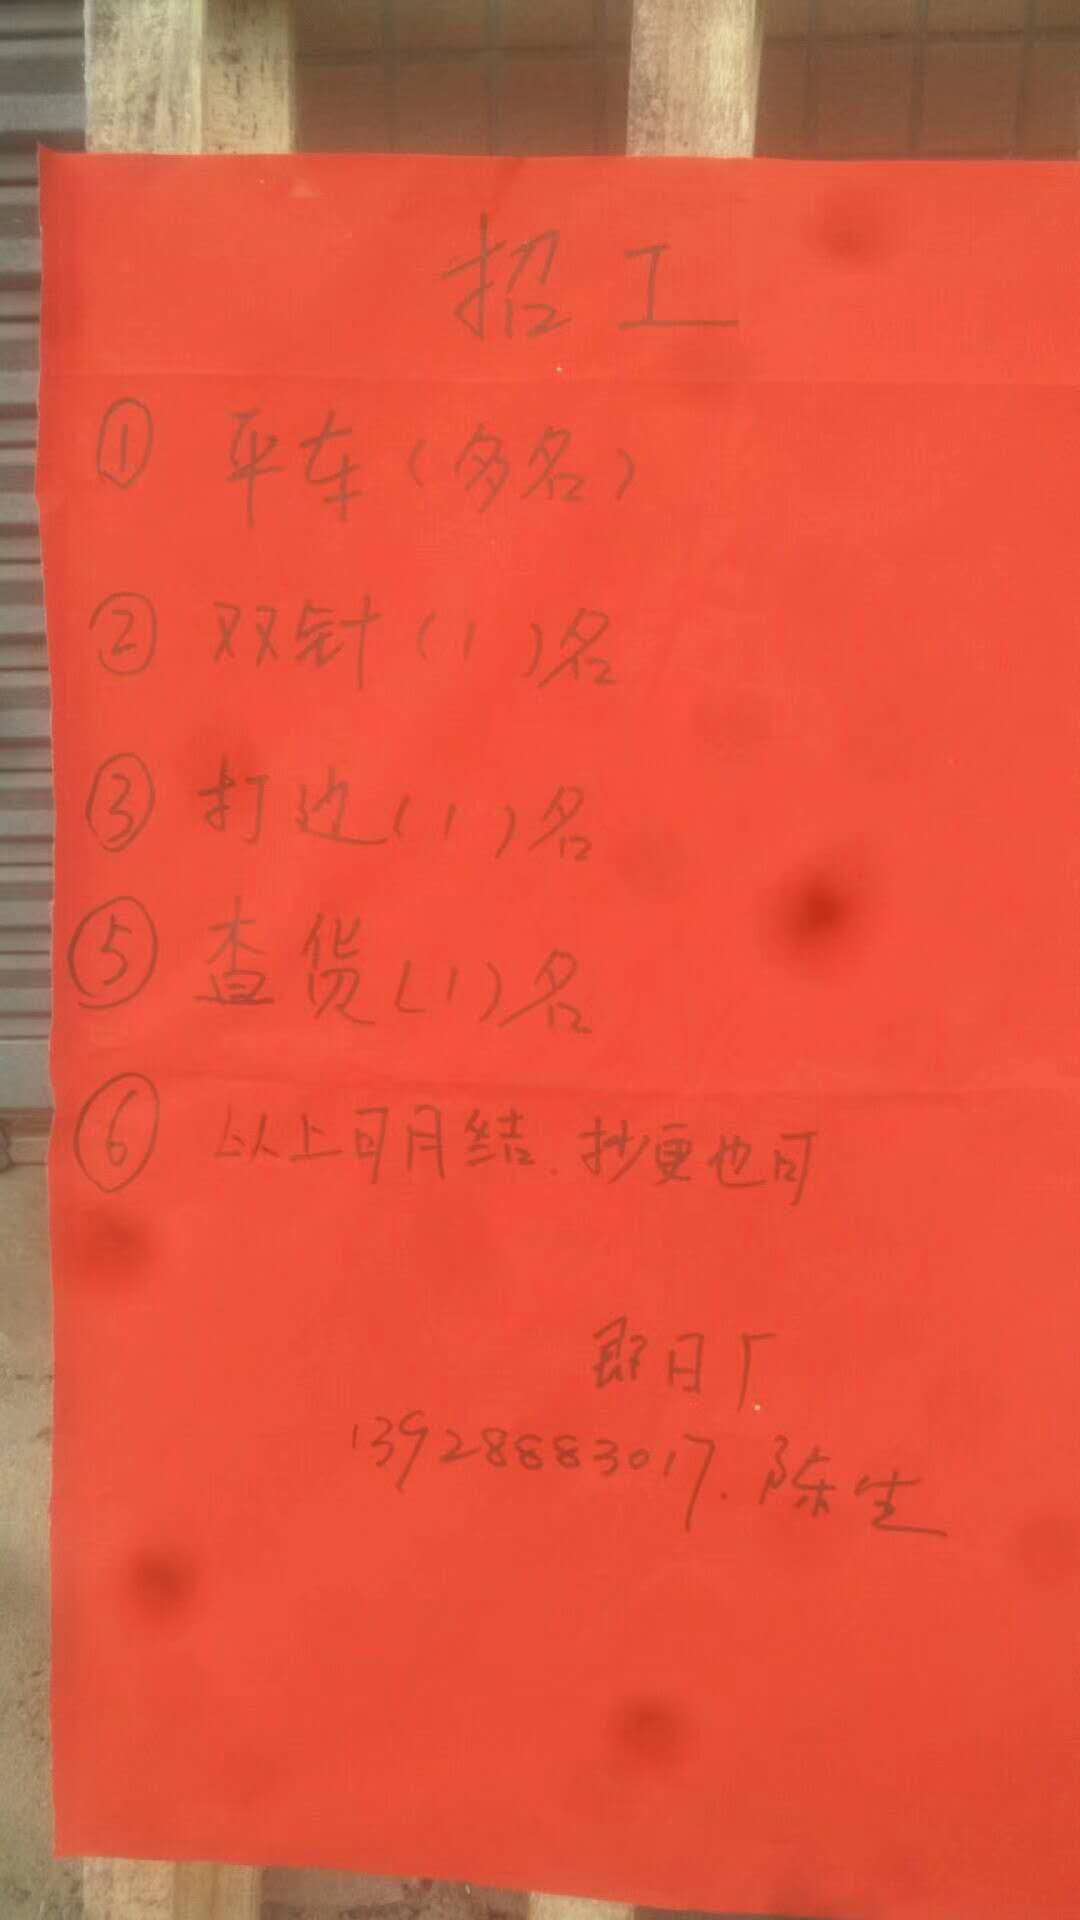 招工
① 平车（多名）
② 双针（1）名
③ 打边（1）名
⑤ 查货（1）名
⑥ 以上可月结.抄更也可
即日厂.
13928883017.陈生